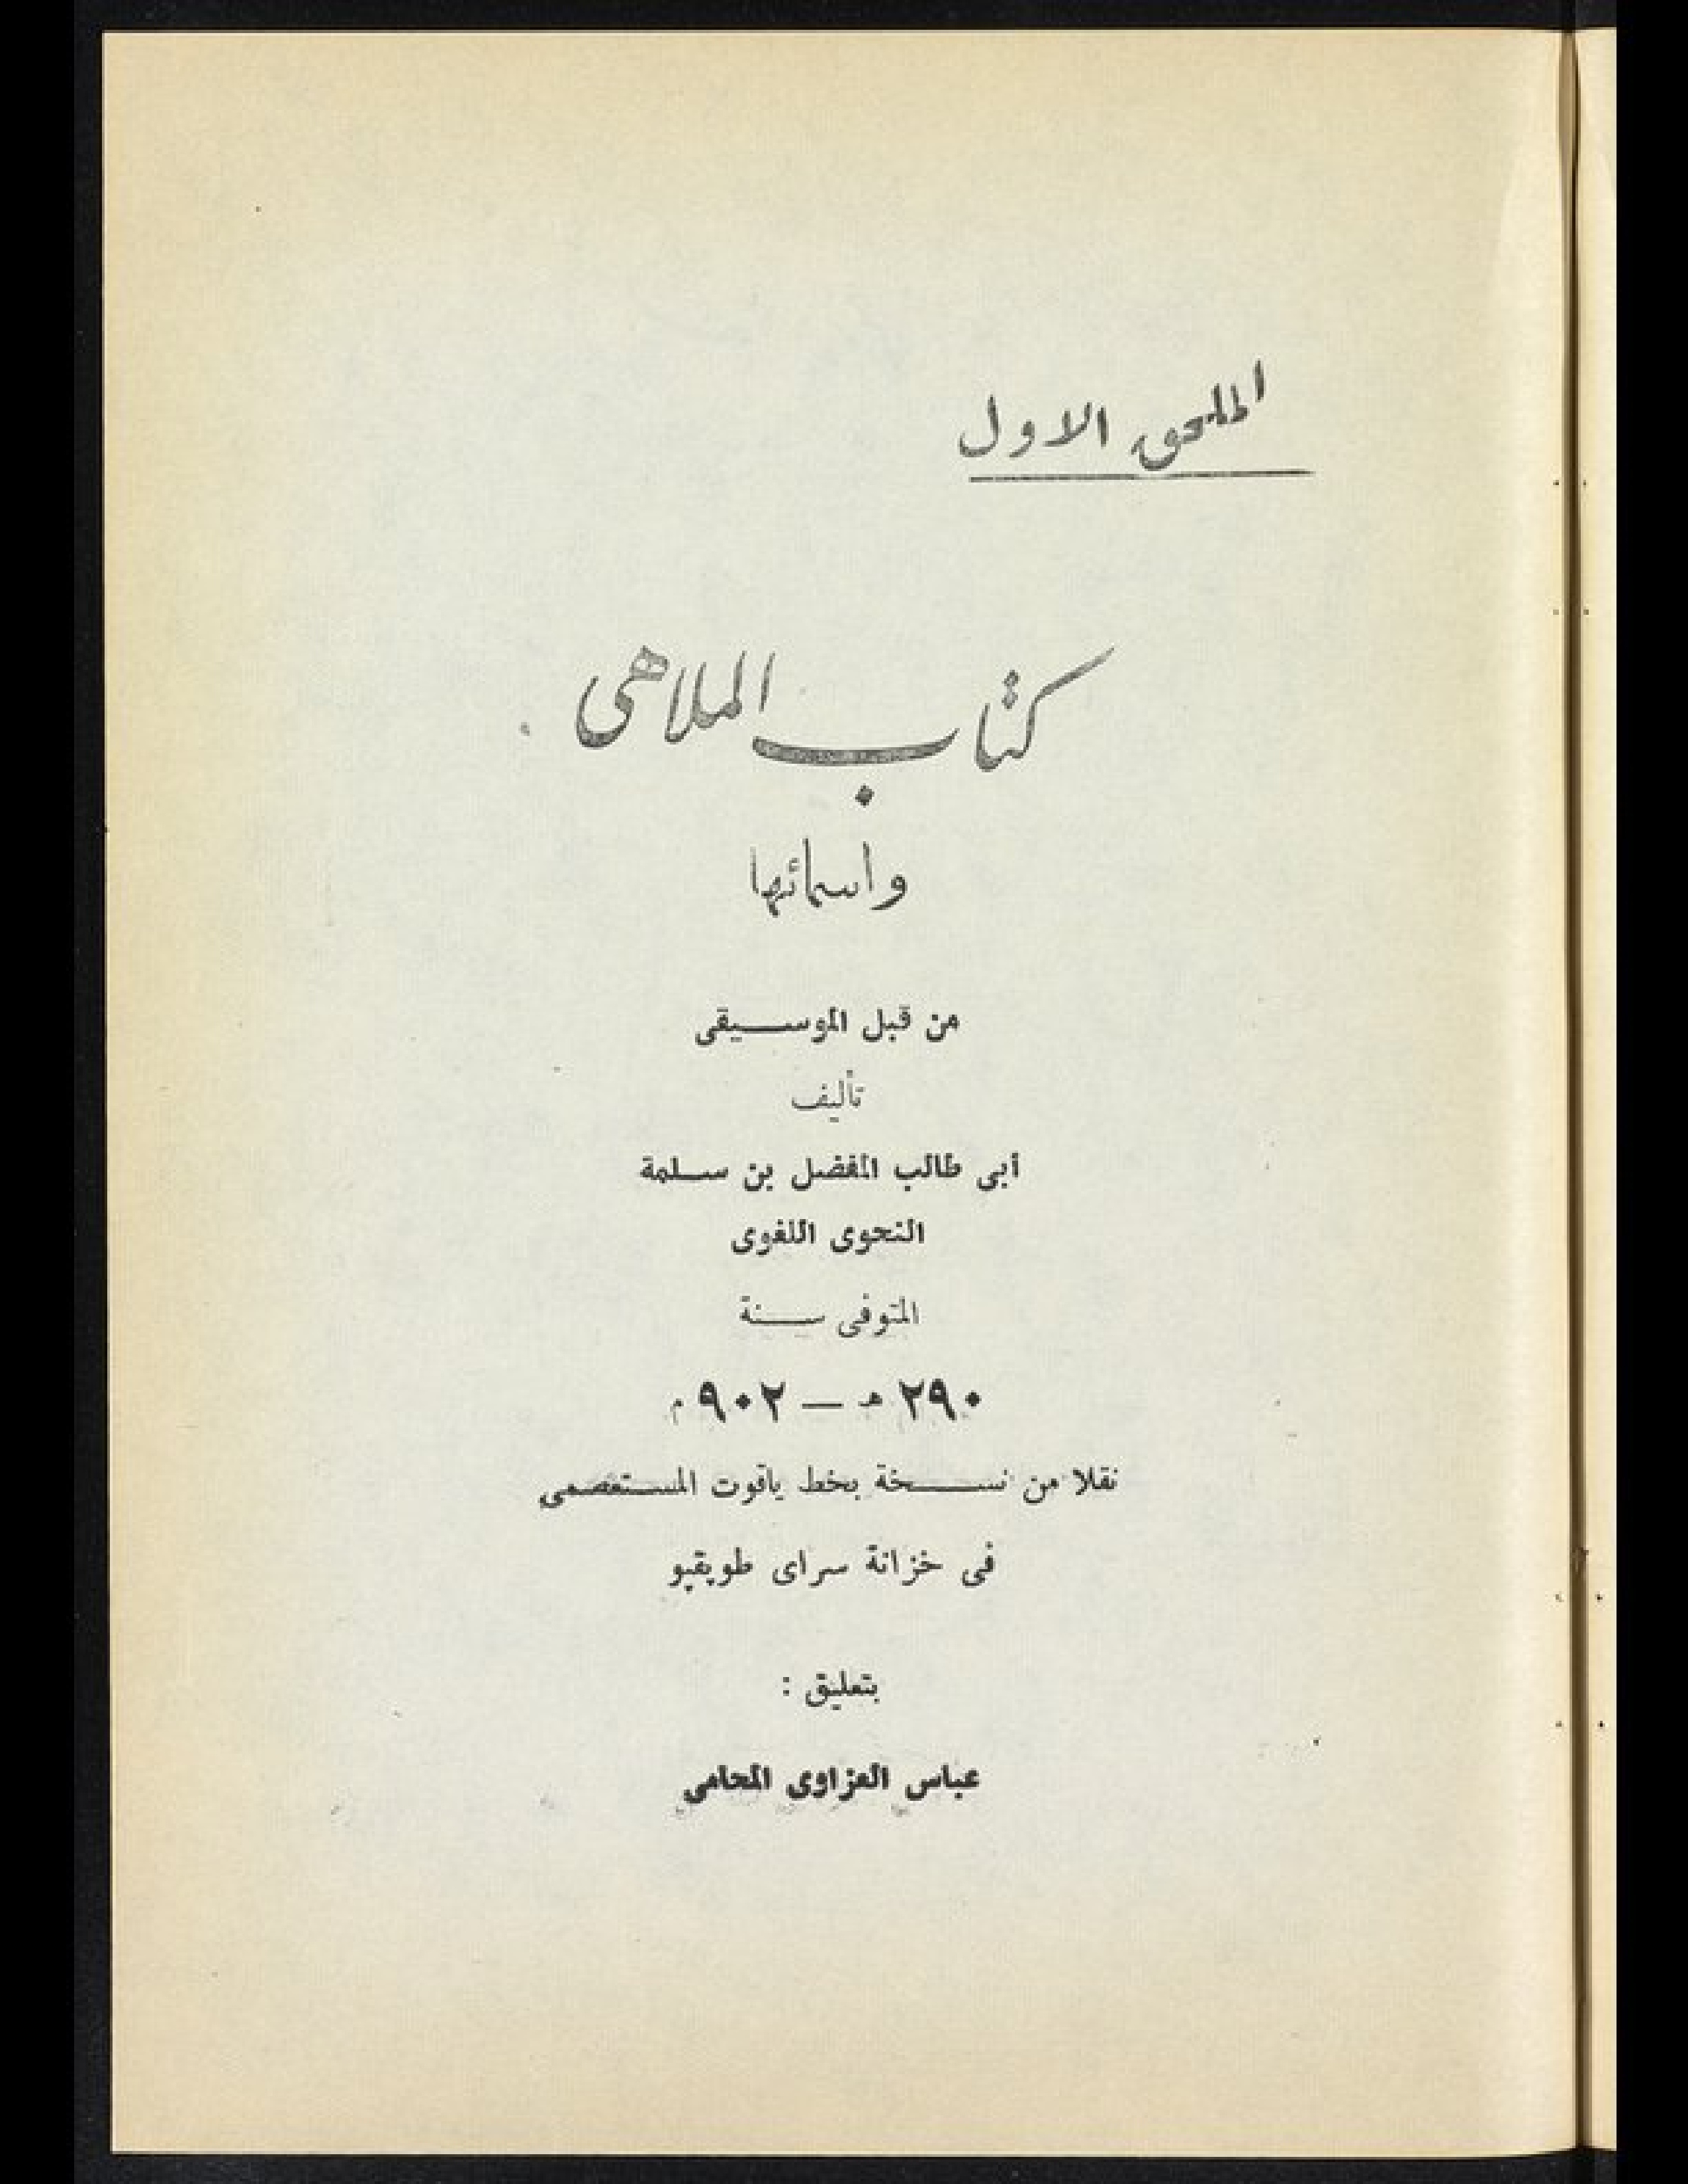 الملحق الاول
كتاب الملاهى
واسمائها
من قبل الموسيقى
تأليف
أبى طالب المفضل بن سلمة
النحوى اللغوى
المتوفى سنة
٢٩٠ هـ — ٩٠٢ م
نقلا من نسخة بخط ياقوت المستعصمى
فى خزانة سراى طوپقپو
بتعليق :
عباس العزاوى المحامى